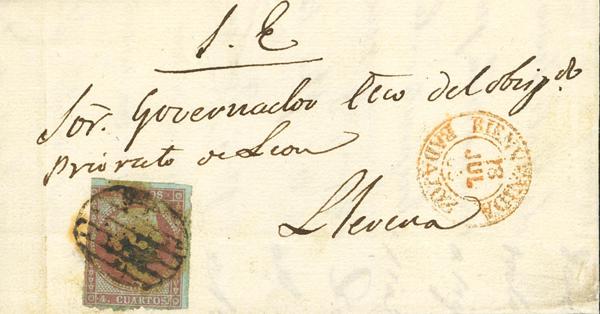 S. E
Sor. Governador Ecco del obispdo.
Priorato de Leon
Llerena
BIENVENIDA
13
JUL
BADAJOZ
CORREOS
4. CUARTOS